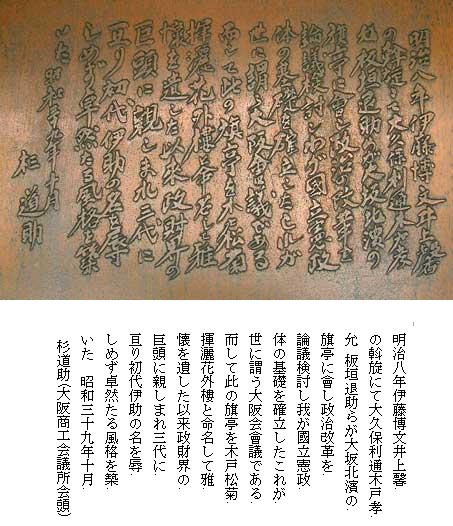 明治八年伊藤博文井上馨
の斡旋にて大久保利通木戸孝
允板垣退助らが大阪北濱の
旗亭に會し政治改革を
論議検討しわが國立憲政
体の基礎を確立したこれが
世に謂う大阪會議である
而して此の旗亭を木戸松菊
揮灑花外樓と命名して雅
懐を遺した以来政財界の
巨頭に親しまれ三代に
亘り初代伊助の名を辱
しめず卓然たる風格を築
いた 昭和三十九年十月
杉道助
明治八年伊藤博文井上馨
の斡旋にて大久保利通木戸孝
允 板垣退助らが大坂北濱の
旗亭に會し政治改革を
論議検討し我が國立憲政
体の基礎を確立したこれが
世に謂う大阪会會議である
而して此の旗亭を木戸松菊
揮灑花外樓と命名して雅
懐を遺した以来政財界の
巨頭に親しまれ三代に
亙り初代伊助の名を辱
しめず卓然たる風格を築
いた 昭和三十九年十月
杉道助(大阪商工会議所会頭)